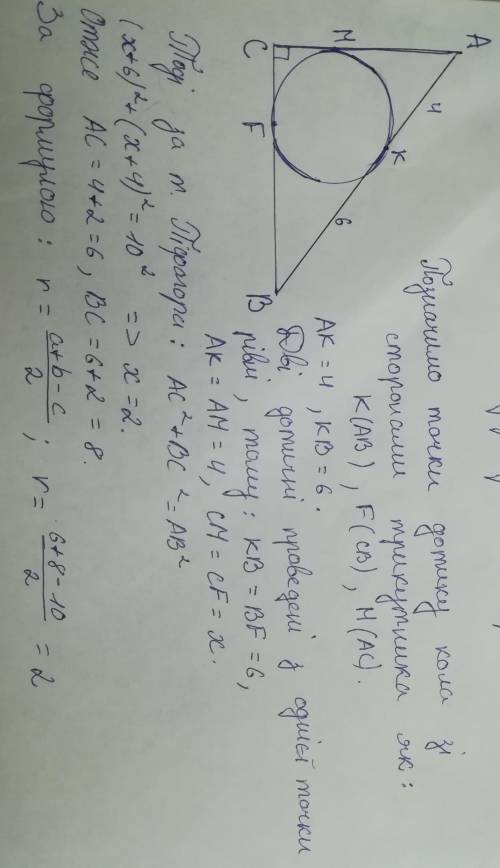 Позначимо точки дотику кола зі
сторонами трикутника як:
K(AB), F(CB), M(AC).
AK = 4, KB = 6.
Дві дотичні проведені з однієї точки
рівні, тому: KB = BF = 6,
AK = AM = 4, CM = CF = x.
A
M
4
K
C
F
6
B
Тоді за т. Піфагора: AC² + BC² = AB²
(x+6)² + (x+4)² = 10² => x = 2.
Отже AC = 4+2 = 6, BC = 6+2 = 8.
За формулою: r = a+b-c/2; r = 6+8-10/2 = 2